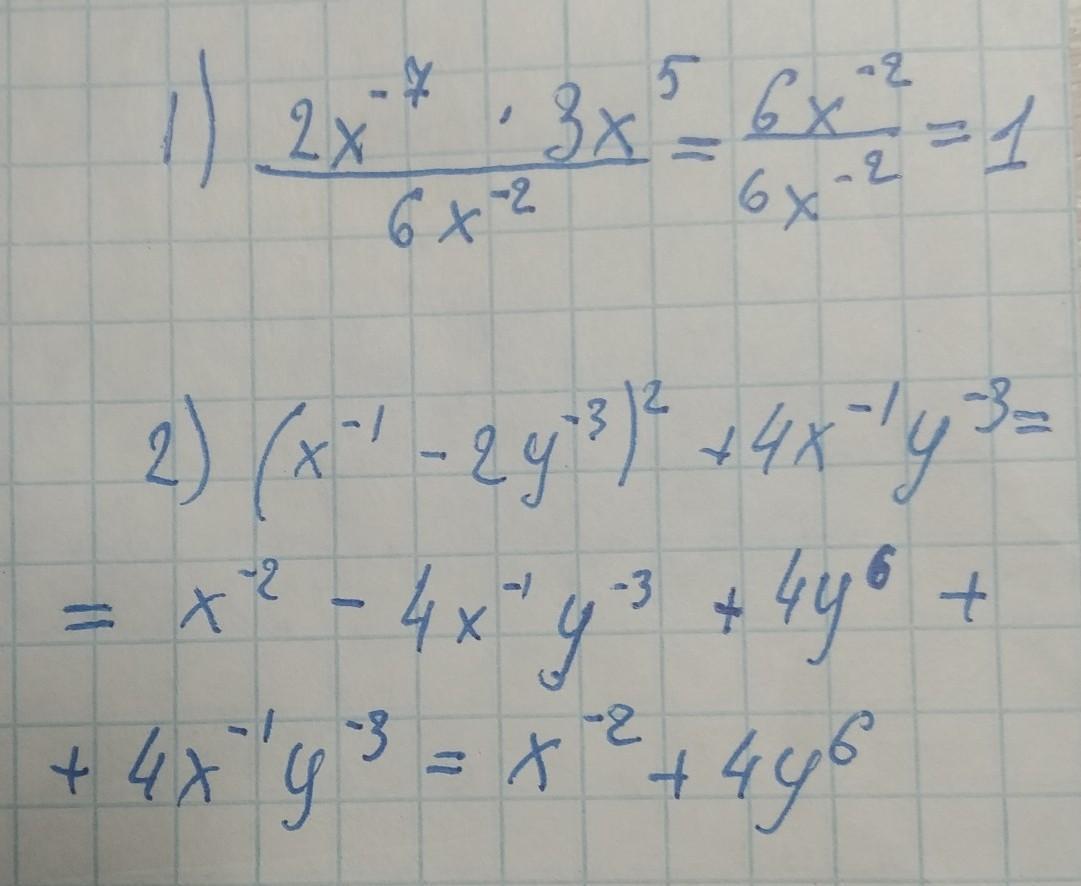 1) (2x⁻⁷ · 3x⁵)/(6x⁻²) = (6x⁻²)/(6x⁻²) = 1
2) (x⁻¹ - 2y⁻³)² + 4x⁻¹y⁻³ =
= x⁻² - 4x⁻¹y⁻³ + 4y⁶ +
+ 4x⁻¹y⁻³ = x⁻² + 4y⁶